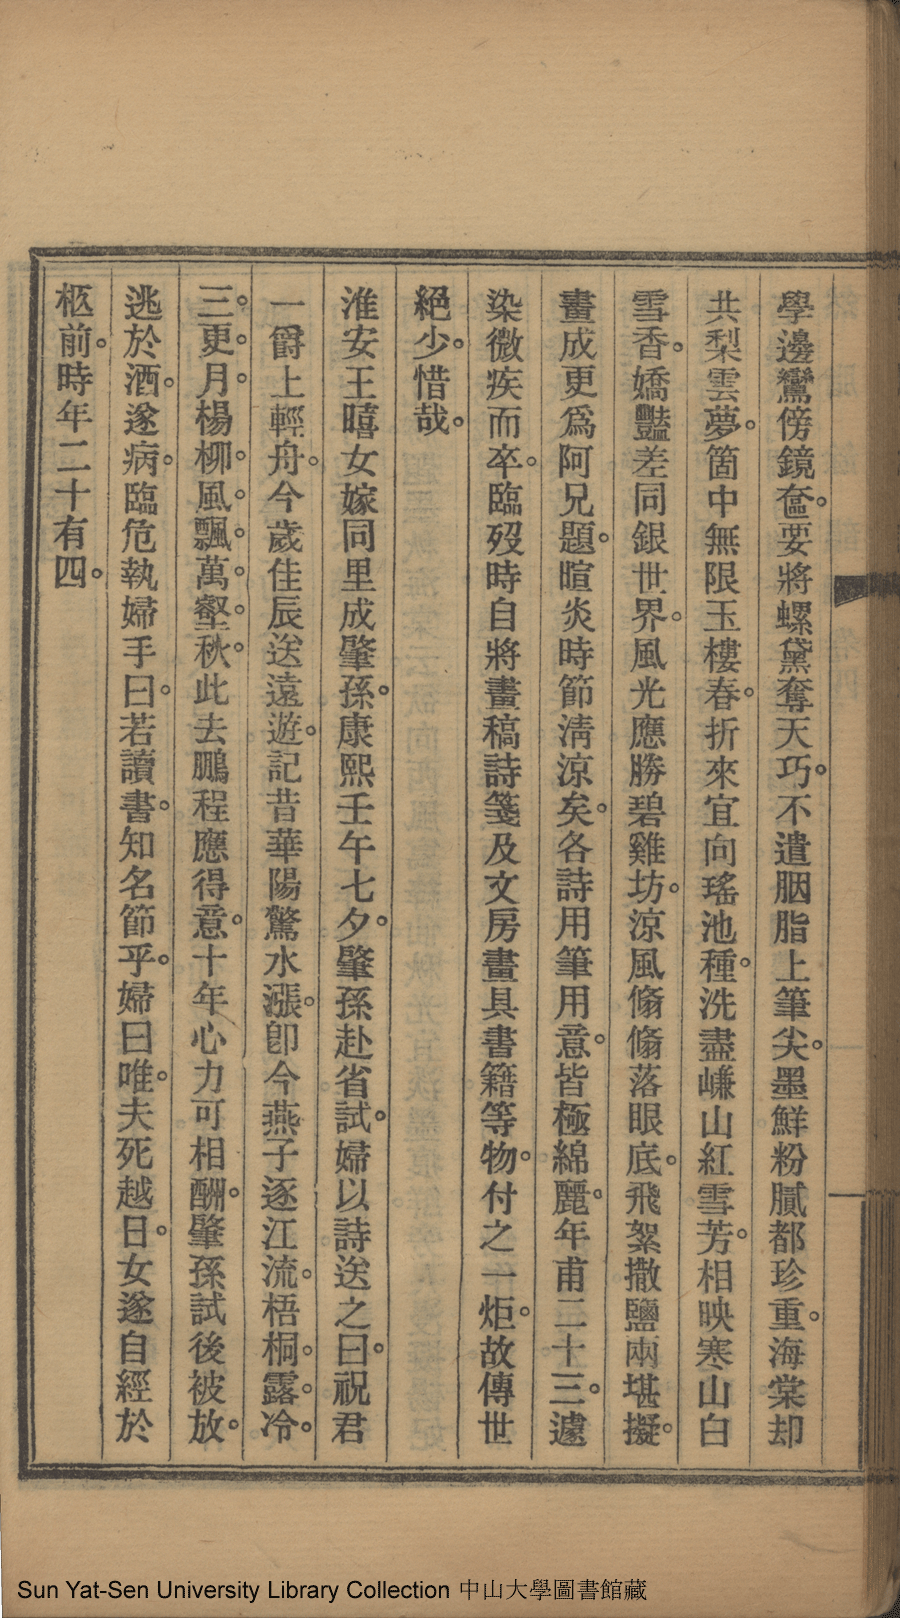 學邊鸞傍鏡奩。要將螺黛奪天巧。不遣胭脂上筆尖。墨鮮粉膩都珍重。海棠却
共梨雲夢。箇中無限玉樓春。折來宜向瑤池種。洗盡嵰山紅雪芳。相映寒山白
雪香。嬌豔差同銀世界。風光應勝碧雞坊。涼風翛翛落眼底。飛絮撒鹽兩堪擬。
畫成更爲阿兄題。暄炎時節淸涼矣。各詩用筆用意。皆極綿麗。年甫二十三。遽
染微疾而卒。臨歿時自將畫稿詩箋及文房畫具書籍等物。付之一炬。故傳世
絕少。惜哉。
淮安王暿女嫁同里成肇孫。康熙壬午七夕。肇孫赴省試。婦以詩送之曰。祝君
一爵上輕舟。今歲佳辰送遠遊。記昔華陽驚水漲。卽今燕子逐江流。梧桐。露。冷。
三。更。月。楊柳。風。飄。萬。壑。秋。此去鵬程應得意。十年心力可相酬。肇孫試後被放。
逃於酒。遂病。臨危執婦手曰。若讀書。知名節乎。婦曰唯。夫死越日。女遂自經於
柩前。時年二十有四。
Sun Yat-Sen University Library Collection 中山大學圖書館藏